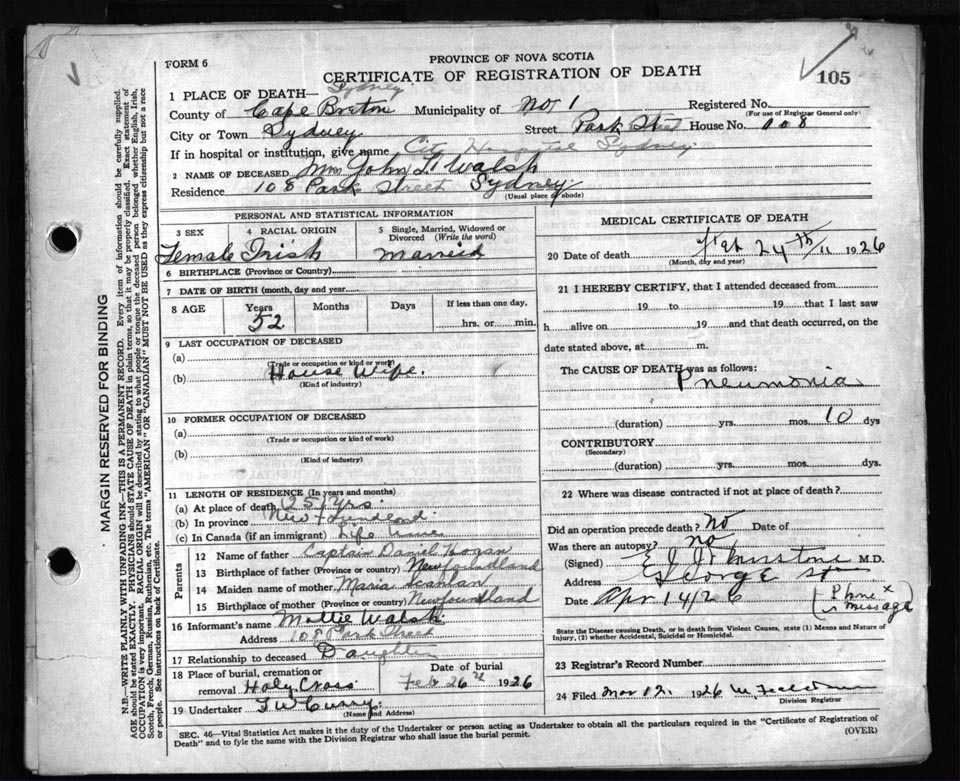 FORM 6
PROVINCE OF NOVA SCOTIA
CERTIFICATE OF REGISTRATION OF DEATH
105
1 PLACE OF DEATH— Sydney
County of Cape Breton Municipality of No 1 Registered No.
(For use of Registrar General only)
City or Town Sydney Street Park Street House No. 108
If in hospital or institution, give name City Hospital Sydney
2 NAME OF DECEASED Mrs John L. Walsh
Residence 108 Park Street Sydney
(Usual place of abode)
PERSONAL AND STATISTICAL INFORMATION
3 SEX 4 RACIAL ORIGIN 5 Single, Married, Widowed or Divorced (Write the word)
Female Irish Married
6 BIRTHPLACE (Province or Country)
7 DATE OF BIRTH (month, day and year)
8 AGE Years Months Days If less than one day,
52 hrs. or min.
9 LAST OCCUPATION OF DECEASED
(a)
(Trade or occupation or kind of work)
(b) House Wife.
(Kind of industry)
10 FORMER OCCUPATION OF DECEASED
(a)
(Trade or occupation or kind of work)
(b)
(Kind of industry)
11 LENGTH OF RESIDENCE (In years and months)
(a) At place of death 25 yrs
(b) In province
(c) In Canada (if an immigrant) Life time
Parents
12 Name of father Captain Daniel Hogan
13 Birthplace of father (Province or country) Newfoundland
14 Maiden name of mother Maria Scanlan
15 Birthplace of mother (Province or country) Newfoundland
16 Informant's name Mollie Walsh
Address 108 Park Street
17 Relationship to deceased Daughter
18 Place of burial, cremation or removal Holy Cross Date of burial Feb 26th 1926
19 Undertaker T W Curry.
(Name and Address)
MEDICAL CERTIFICATE OF DEATH
20 Date of death Feb 24th 1926
(Month, day and year)
21 I HEREBY CERTIFY, that I attended deceased from
19 to 19 that I last saw
h alive on 19 and that death occurred, on the
date stated above, at m.
The CAUSE OF DEATH was as follows:
Pneumonia
(duration) yrs. mos. 10 dys
CONTRIBUTORY
(Secondary)
(duration) yrs. mos. dys.
22 Where was disease contracted if not at place of death?
Did an operation precede death? No Date of
Was there an autopsy? no
(Signed) M.D.
Address George St
Date Apr 14/26 (Phone message)
State the Disease causing Death, or in death from Violent Causes, state (1) Means and Nature of
Injury, (2) whether Accidental, Suicidal or Homicidal.
23 Registrar's Record Number
24 Filed Mar 12. 1926
Division Registrar
SEC. 46—Vital Statistics Act makes it the duty of the Undertaker or person acting as Undertaker to obtain all the particulars required in the "Certificate of Registration of
Death" and to fyle the same with the Division Registrar who shall issue the burial permit.
(OVER)
MARGIN RESERVED FOR BINDING
N.B.—WRITE PLAINLY WITH UNFADING INK—THIS IS A PERMANENT RECORD. Every item of information should be carefully supplied.
AGE should be stated EXACTLY. PHYSICIANS should STATE CAUSE OF DEATH in plain terms, so that it may be properly classified. Exact statement of
OCCUPATION is very important. RACIAL ORIGIN will be described by stating to what people or tongue the deceased person belonged whether English, Irish,
Scotch, French, German, Russian, Ruthenian, etc. The terms "AMERICAN" OR "CANADIAN" MUST NOT BE USED as they express citizenship but not a race
or people. See instructions on back of Certificate.